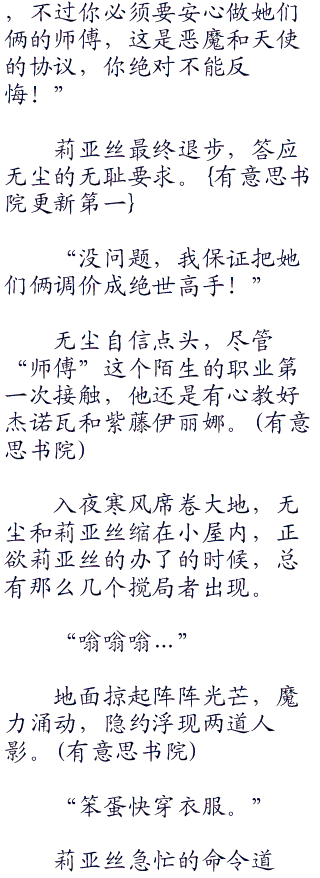 ，不过你必须要安心做她们
俩的师傅，这是恶魔和天使
的协议，你绝对不能反
悔！”
莉亚丝最终退步，答应
无尘的无耻要求。{有意思书
院更新第一}
“没问题，我保证把她
们俩调价成绝世高手！”
无尘自信点头，尽管
“师傅”这个陌生的职业第
一次接触，他还是有心教好
杰诺瓦和紫藤伊丽娜。(有意
思书院)
入夜寒风席卷大地，无
尘和莉亚丝缩在小屋内，正
欲莉亚丝的办了的时候，总
有那么几个搅局者出现。
“嗡嗡嗡…”
地面掠起阵阵光芒，魔
力涌动，隐约浮现两道人
影。(有意思书院)
“笨蛋快穿衣服。”
莉亚丝急忙的命令道